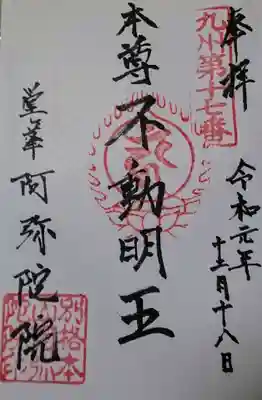 奉拝
九州第十七番
令和元年
十二月十八日
本尊 不動明王
阿弥陀院
別格本